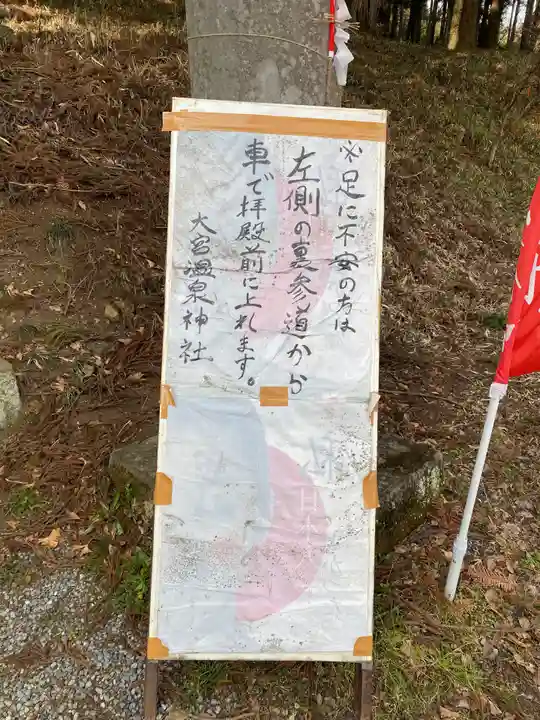 ※足に不安の方は
左側の裏参道から
車で拝殿前に上れます。
大宮温泉神社